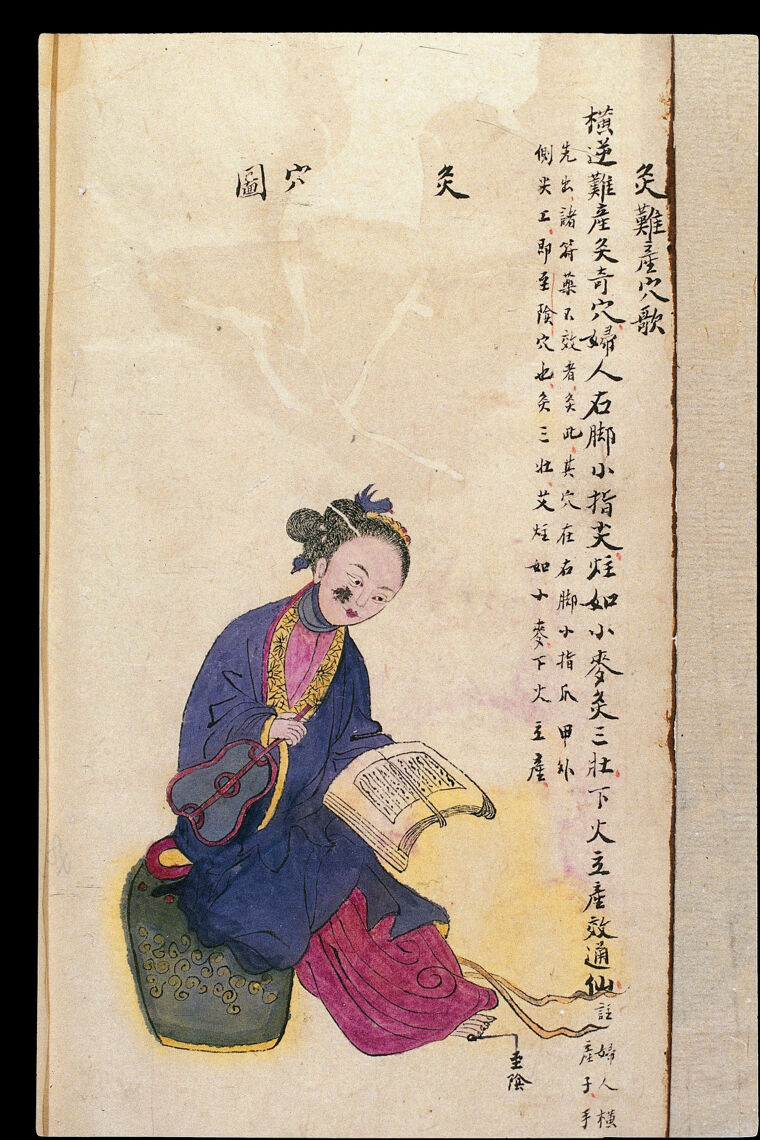 灸難產穴歌
橫逆難產灸奇穴婦人右脚小指尖炷如小麥灸三壯下火立產效通仙註
婦人橫
產子手
先出諸符藥不效者灸此其穴在右脚小指爪甲外
側尖上即至陰穴也灸三壯艾炷如小麥下火立產
灸穴圖
至陰